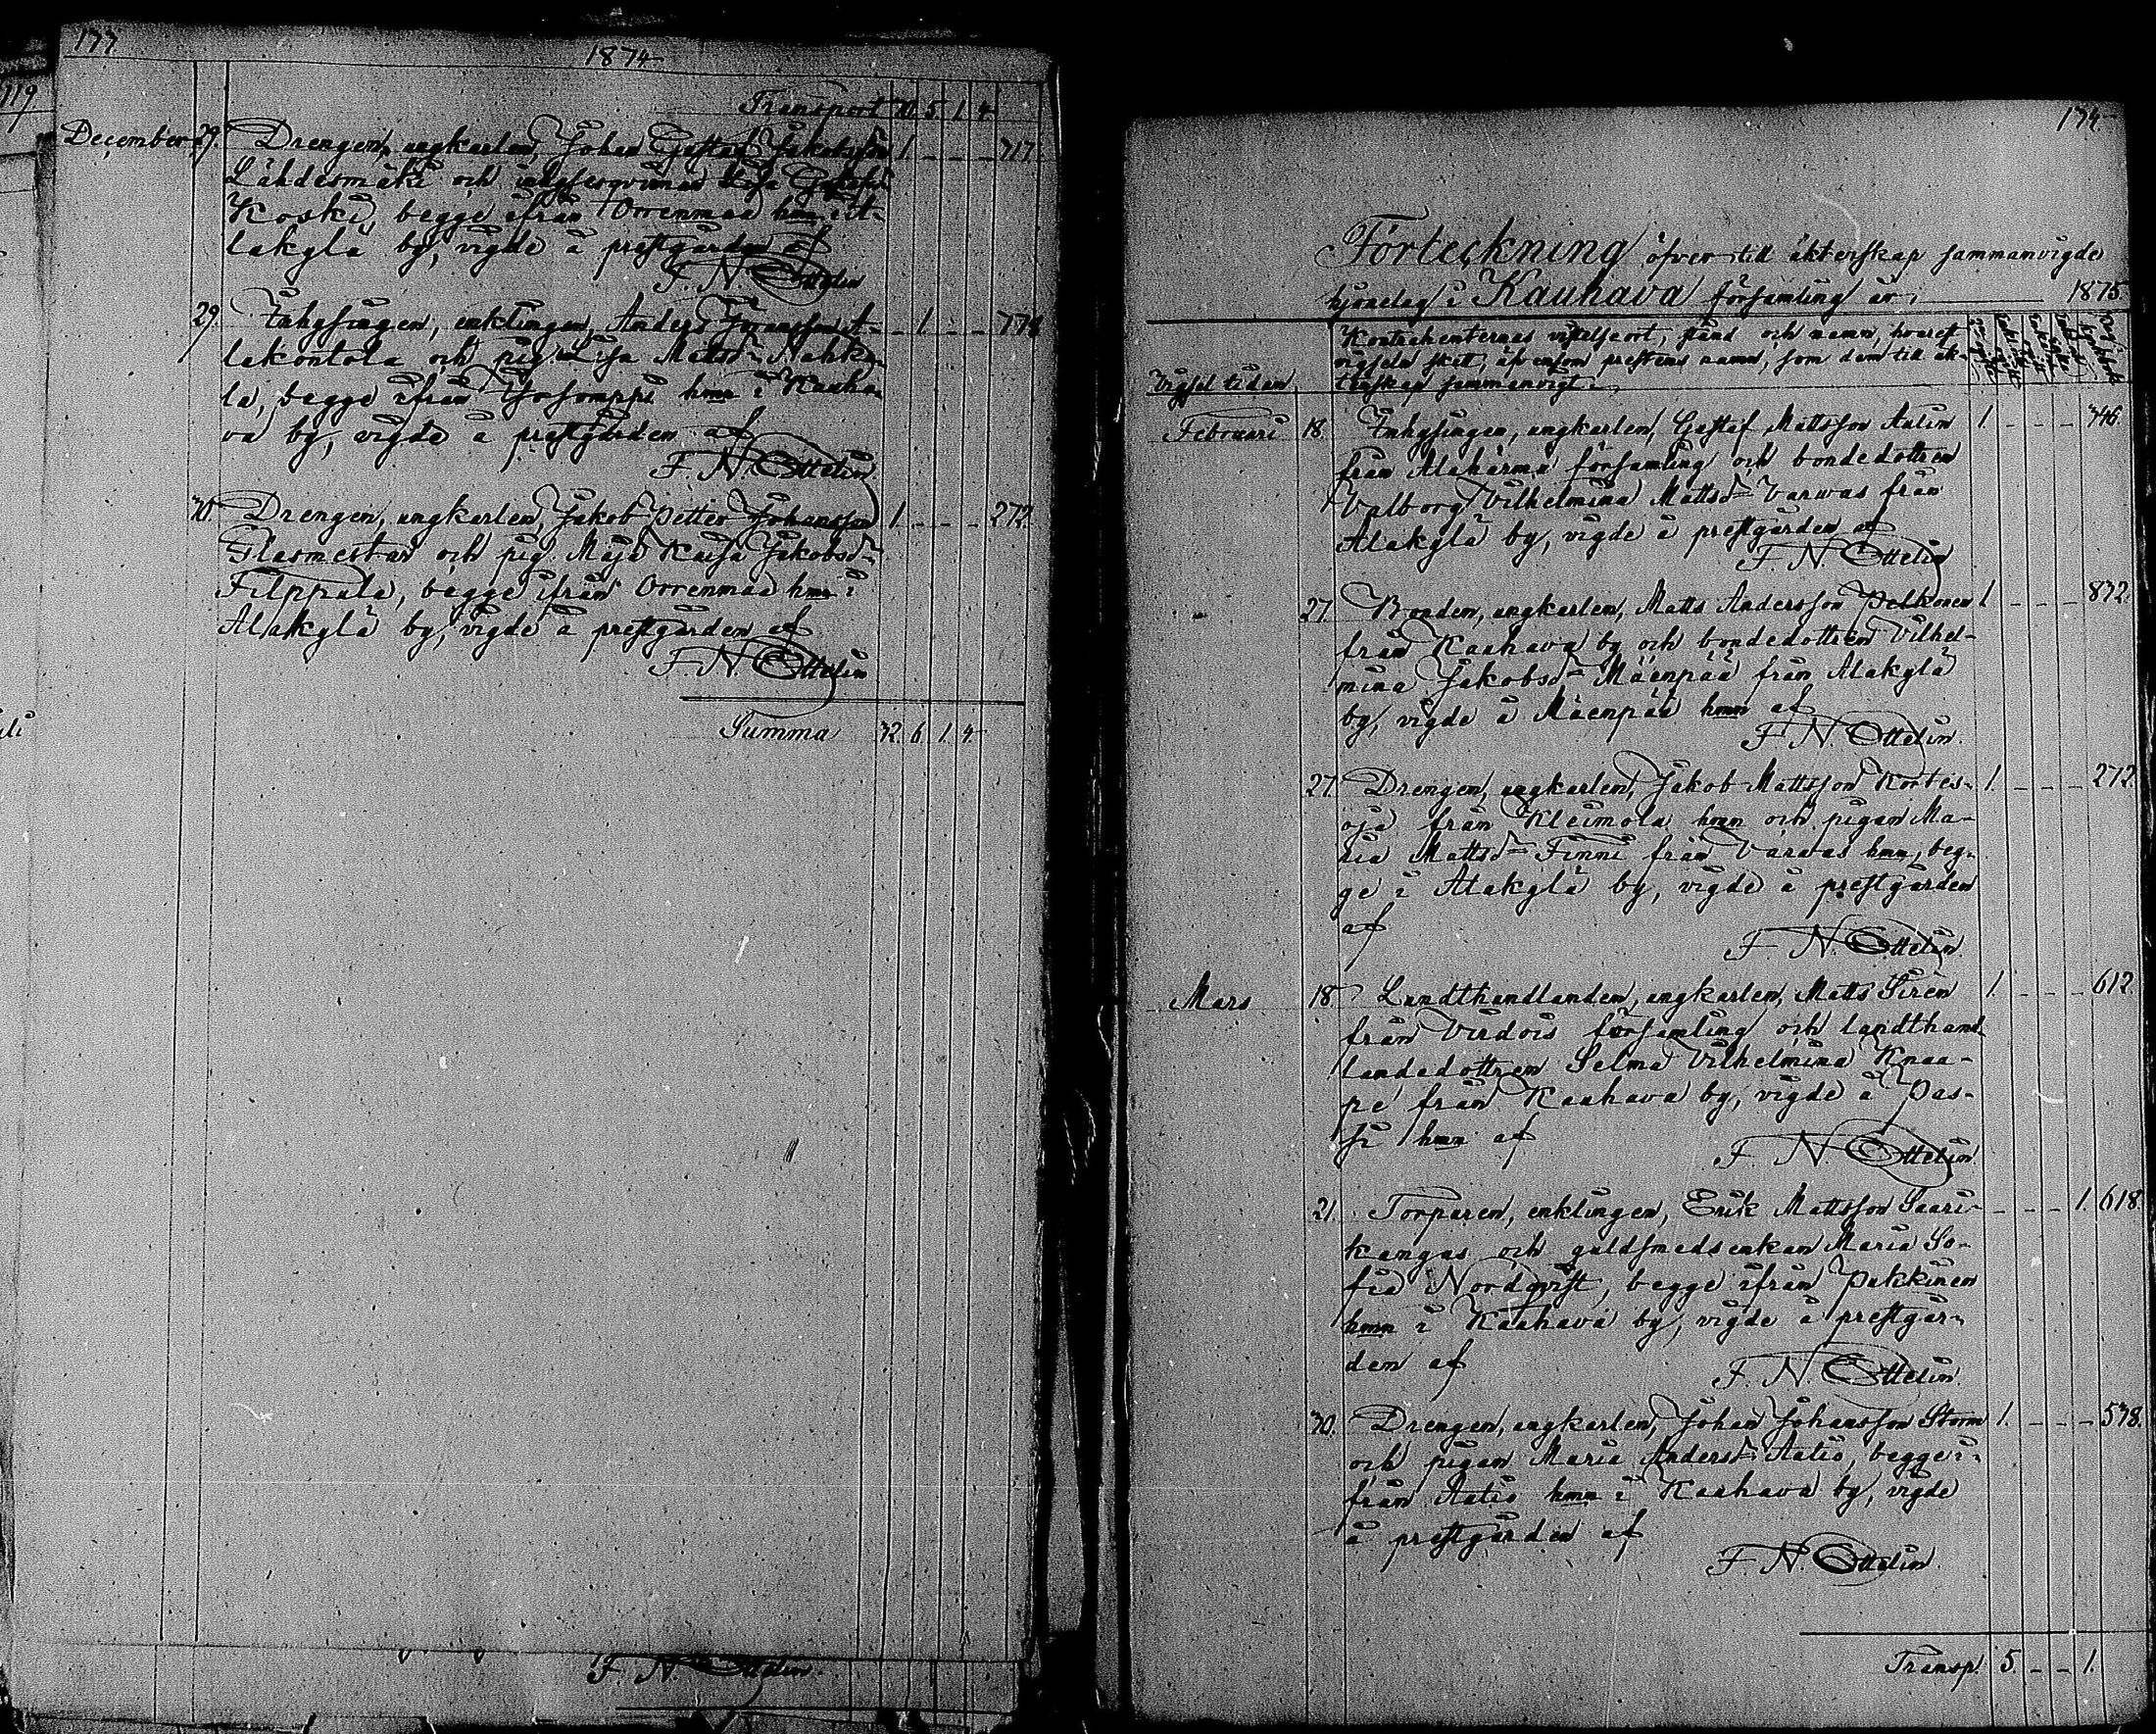 133
1874
Transport 30. 5. 1. 4.
December 29. Drengen, ungkarlen, Johan Gustaf Jakobsson 1. - - - 717.
Lähdesmäki och inhysesqvinnan Lisa
Koski, begge ifrån Orrenmaa hmn i A-
lakylä by, vigde å prestgården af
F. N. Ottelin
29. Inhysingen, enklingen, Anders Johansson A- - 1. - -
lakontola och pig. Lisa Mattsd:r
la, begge ifrån hmn i Kauha-
va by, vigde å prestgården af
F. N. Ottelin.
30. Drengen, ungkarlen, Jakob Petter Johansson 1. - - - 272.
Glasmestar och pig. Maja Kaisa Jakobsd:r
Filppula, begge ifrån Orrenmaa hmn i
Alakylä by, vigde å prestgården af
F. N. Ottelin
Summa 32. 6. 1. 4.
F. N. Ottelin.
134
Förteckning öfver till äktenskap sammanvigde
hjonelag i Kauhava församling år 1875.
Kontrahenternas vistelseort, stånd och namn, hvarest
vigseln skett, äfvensom prestens namn, som dem till äk-
Vigsel tiden. tenskap sammanvigt.
Februari 18. Inhysingen, ungkarlen, Gustaf Mattsson Aalin 1. - - - 746.
från Alahärmä församling och bondedottren
Valborg Vilhelmina Mattsd:r Varwas från
Alakylä by, vigde å prestgården af
F. N. Ottelin
27. Bonden, ungkarlen, Matts Andersson Pelkonen 1. - - - 832.
från Kauhava by och bondedottren Vilhel-
mina Jakobsd:r Mäenpää från Alakylä
by, vigde å Mäenpää hmn af
F. N. Ottelin.
27. Drengen, ungkarlen, Jakob Mattsson Kortes- 1. - - - 272.
oja från Kleimola hmn och pigan Ma-
ria Mattsd:r Finni från Varwas hmn, beg-
ge i Alakylä by, vigde å prestgården
af
F. N. Ottelin.
Mars 18. Landthandlanden, ungkarlen, Matts Sirén 1. - - - 612.
från Virdois församling och landthand-
landedottren Selma Vilhelmina Knaa-
pe från Kauhava by, vigde å Pas-
si hmn af
F. N. Ottelin.
21. Torparen, enklingen, Erik Mattsson Saari- - - - 1. 618.
kangas och guldsmedsenkan Maria So-
fia Nordqvist, begge ifrån Pukkinen
hmn i Kauhava by, vigde å prestgår-
den af
F. N. Ottelin.
30. Drengen, ungkarlen, Johan Johansson Storm 1. - - - 538.
och pigan Maria Andersd:r Aatio, begge i-
från Aatio hmn i Kauhava by, vigde
å prestgården af
F. N. Ottelin
Transp. 5. - - 1.